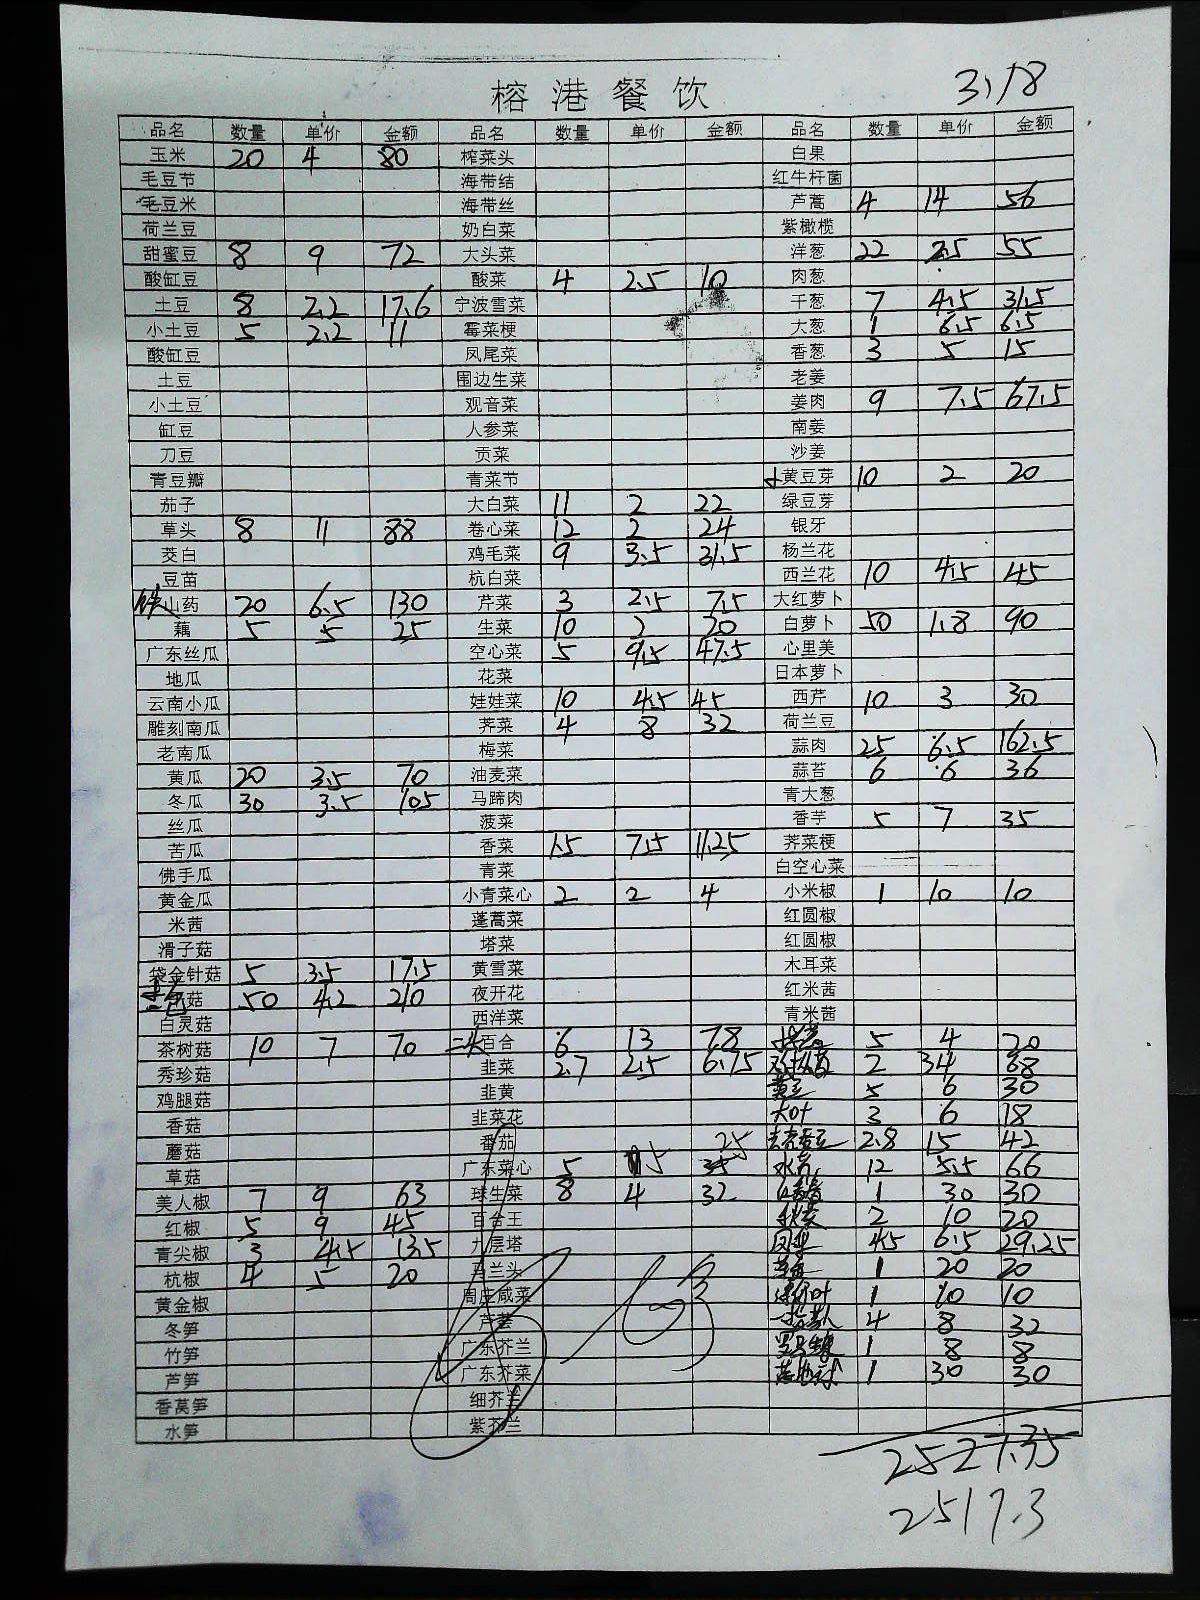 榕港餐饮 31/8
品名 数量 单价 金额 品名 数量 单价 金额 品名 数量 单价 金额
玉米 20 4 80 榨菜头 白果
毛豆节 海带结 红牛杆菌
毛豆米 海带丝 芦蒿 4 14 56
荷兰豆 奶白菜 紫橄榄
甜蜜豆 8 9 72 大头菜 洋葱 22 2.5 55
酸缸豆 酸菜 4 2.5 10 肉葱
土豆 8 2.2 17.6 宁波雪菜 干葱 7 4.5 31.5
小土豆 5 2.2 11 霉菜梗 大葱 1 6.5 6.5
酸缸豆 凤尾菜 香葱 3 5 15
土豆 围边生菜 老姜
小土豆 观音菜 姜肉 9 7.5 67.5
缸豆 人参菜 南姜
刀豆 贡菜 沙姜
青豆瓣 青菜节 黄豆芽 10 2 20
茄子 大白菜 11 2 22 绿豆芽
草头 8 11 88 卷心菜 12 2 24 银牙
茭白 鸡毛菜 9 3.5 31.5 杨兰花
豆苗 杭白菜 西兰花 10 4.5 45
铁山药 20 6.5 130 芹菜 3 2.5 7.5 大红萝卜
藕 5 5 25 生菜 10 2 20 白萝卜 50 1.8 90
广东丝瓜 空心菜 5 9.5 47.5 心里美
地瓜 花菜 日本萝卜
云南小瓜 娃娃菜 10 4.5 45 西芹 10 3 30
雕刻南瓜 荠菜 4 8 32 荷兰豆
老南瓜 梅菜 蒜肉 25 6.5 162.5
黄瓜 20 3.5 70 油麦菜 蒜苔 6 6 36
冬瓜 30 3.5 105 马蹄肉 青大葱
丝瓜 菠菜 香芋 5 7 35
苦瓜 香菜 1.5 7.5 11.25 荠菜梗
佛手瓜 青菜 白空心菜
黄金瓜 小青菜心 2 2 4 小米椒 1 10 10
米茜 蓬蒿菜 红圆椒
滑子菇 塔菜 红圆椒
袋金针菇 5 3.5 17.5 黄雪菜 木耳菜
菇 50 4.2 210 夜开花 红米茜
白灵菇 西洋菜 青米茜
茶树菇 10 7 70 二头百合 6 13 78 5 4 20
秀珍菇 韭菜 2.7 2.5 6.75 2 34 68
鸡腿菇 韭黄 黄豆 5 6 30
香菇 韭菜花 大叶 3 6 18
蘑菇 番茄 25 去壳蚕豆 2.8 15 42
草菇 广东菜心 5 5 12 5.5 66
美人椒 7 9 63 球生菜 8 4 32 1 30 30
红椒 5 9 45 百合王 2 10 20
青尖椒 3 4.5 13.5 九层塔 4.5 6.5 29.25
杭椒 4 5 20 马兰头 1 20 20
黄金椒 周庄咸菜 1 10 10
冬笋 芦荟 4 8 32
竹笋 广东芥兰 罗马生菜 1 8 8
芦笋 广东芥菜 1 30 30
香莴笋 细芥兰
水笋 紫芥兰
2527.35
2517.3